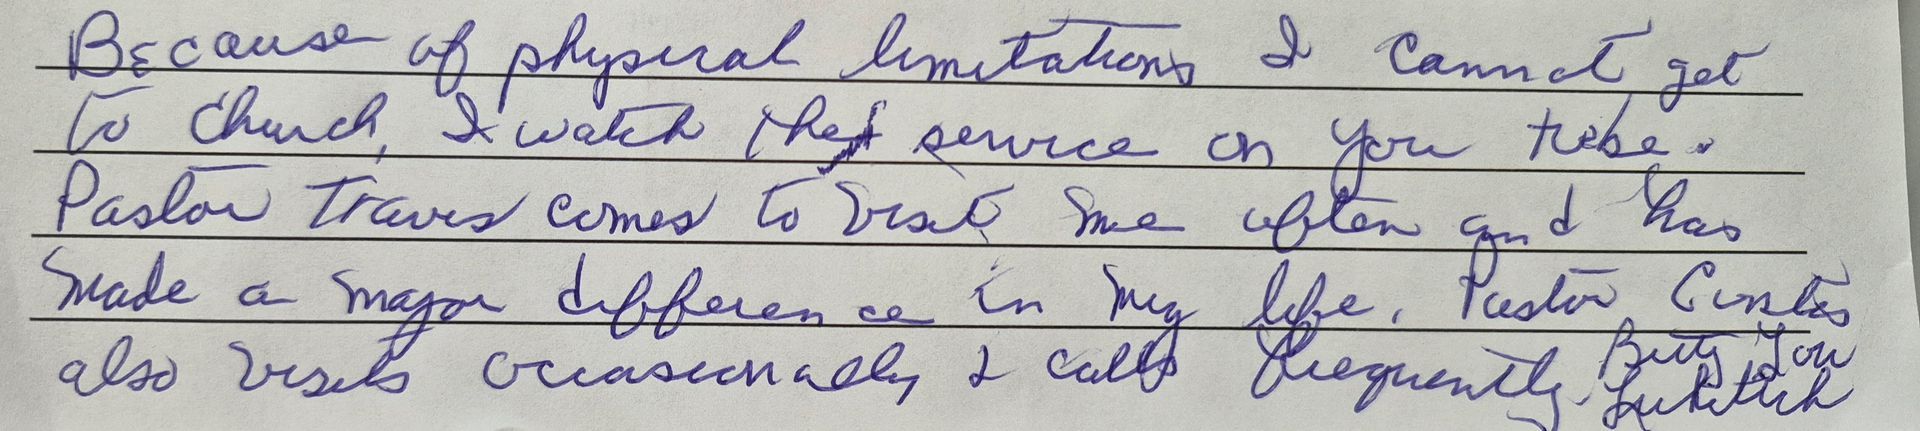 Because of physical limitations I cannot get
to Church, I watch the service on You tube.
Pastor Travis comes to visit me often and has
made a major difference in my life. Pastor
also visits occasionally & calls frequently